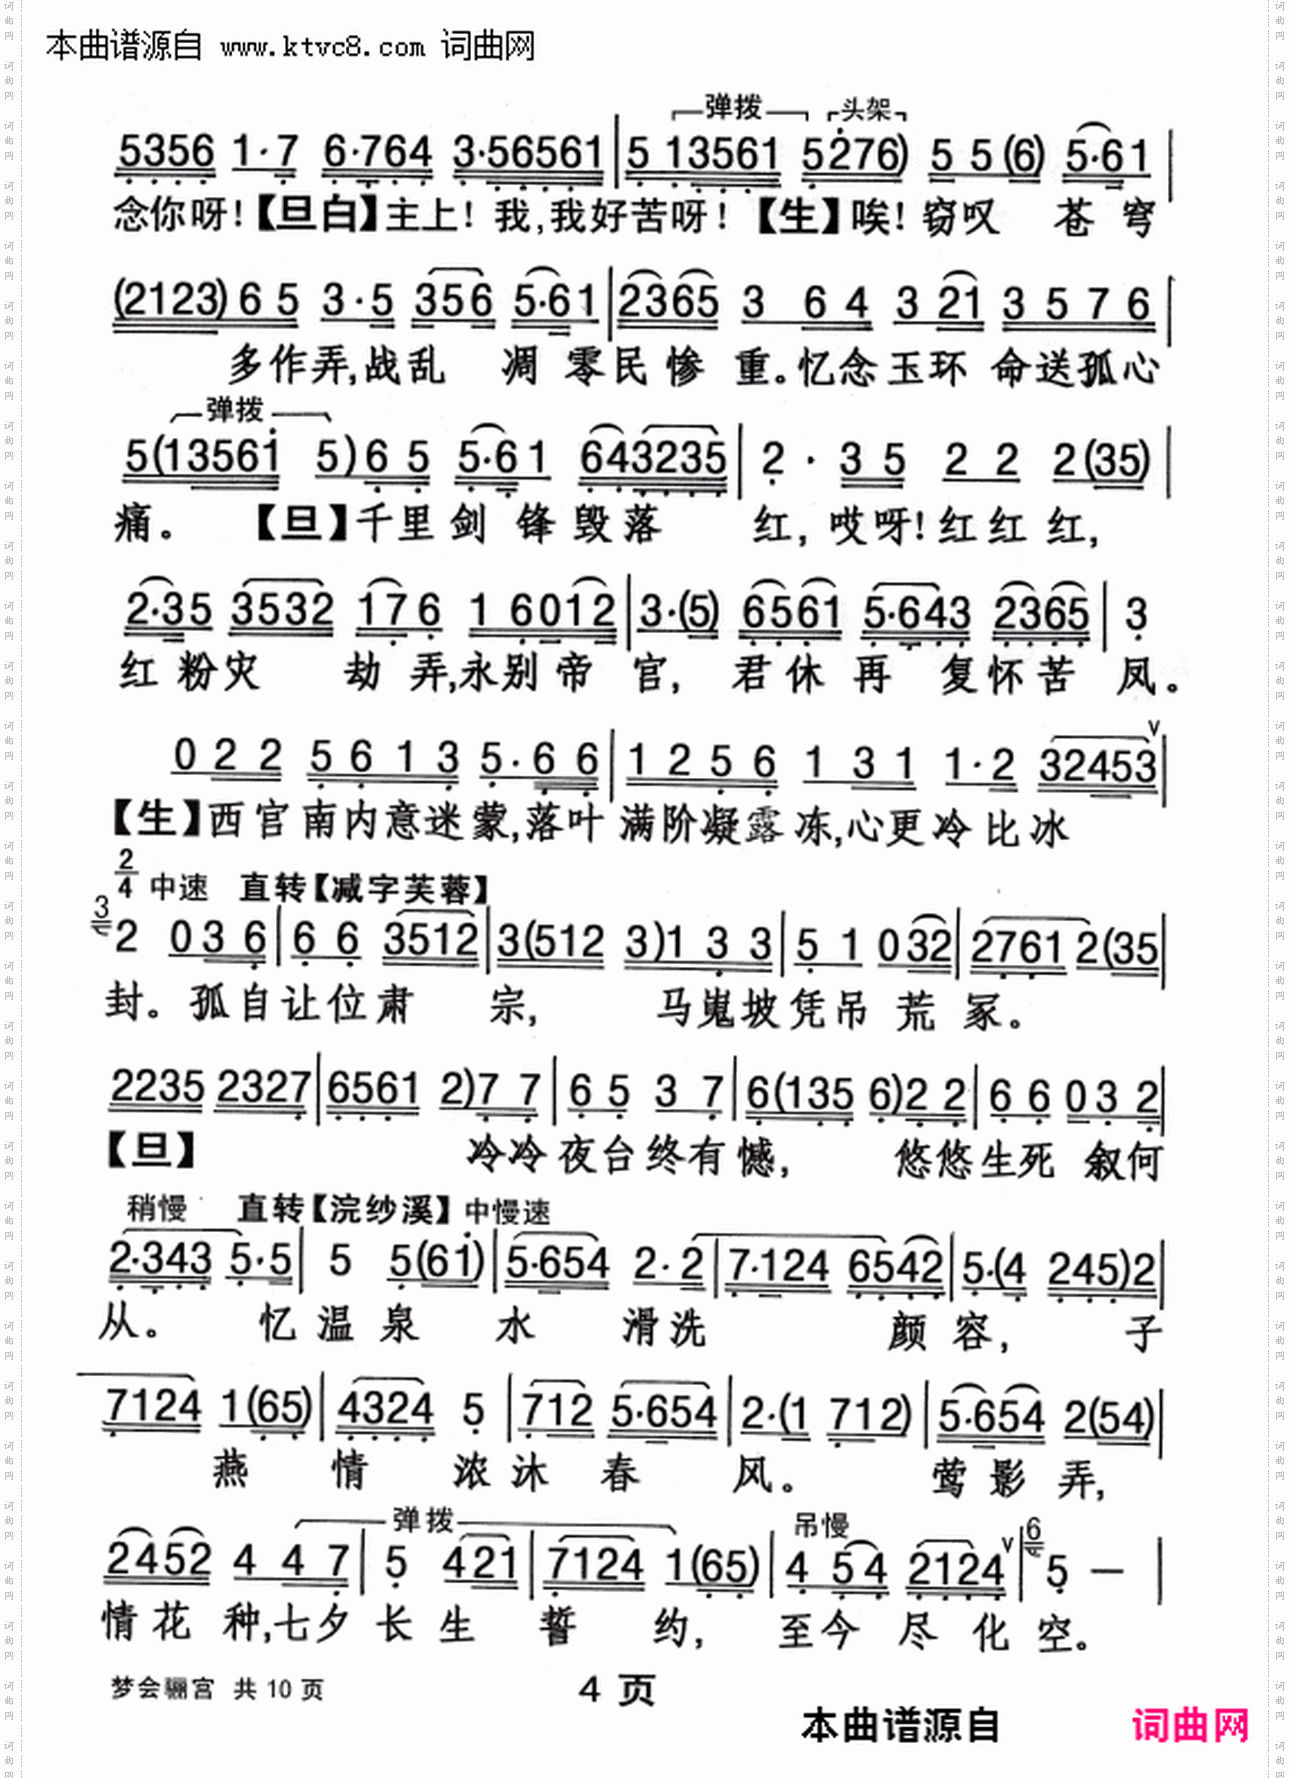 本曲谱源自 www.ktvc8.com 词曲网
弹拨 头架
5356 1·7 6·764 3·56561 | 5 13561 5276) 5 5 (6) 5·61 |
念你呀！【旦白】主上！我，我好苦呀！【生】唉！窃叹 苍 穹
(2123) 6 5 3·5 356 5·61 | 2365 3 6 4 3 21 3 5 7 6 |
多作弄，战乱 凋 零民 惨 重。忆念 玉环 命送孤心
弹拨
5 (13561 5) 6 5 5·61 643235 | 2 · 3 5 2 2 2 (35) |
痛。 【旦】千里剑 锋 毁 落 红，哎呀！红 红 红，
2·35 3532 176 1 6012 | 3·(5) 6561 5·643 2365 | 3
红 粉灾 劫 弄，永别 帝 官，君休 再 复怀苦 凤。
0 2 2 5 6 1 3 5·6 6 | 1 2 5 6 1 3 1 1·2 32453 v |
【生】西官南内意迷蒙，落叶 满阶凝露 冻，心更冷 比 冰
2/4 中速 直转【减字芙蓉】
3 2 0 3 6 | 6 6 3512 | 3(512 3)1 3 3 | 5 1 0 32 | 2761 2(35 |
封。孤自让位肃 宗，马嵬坡凭吊 荒 冢。
2235 2327 | 6561 2)7 7 | 6 5 3 7 | 6(135 6)2 2 | 6 6 0 3 2 |
【旦】 冷冷夜台终有憾，悠悠生死 叙何
稍慢 直转【浣纱溪】中慢速
2·343 5·5 | 5 5(61) | 5·654 2·2 | 7·124 6542 | 5·(4 245)2 |
从。 忆 温 泉 水 滑洗 颜 容，子
7124 1(65) | 4324 5 | 712 5·654 | 2·(1 712) | 5·654 2(54) |
燕 情 浓 沐 春 风。 莺 影 弄，
弹拨 吊慢
2452 4 4 7 | 5 421 | 7124 1(65) | 4 54 2124 v | 6 5 — |
情花 种，七夕 长 生 誓 约，至今 尽 化 空。
梦会骊宫 共10页 4 页
本曲谱源自 词曲网